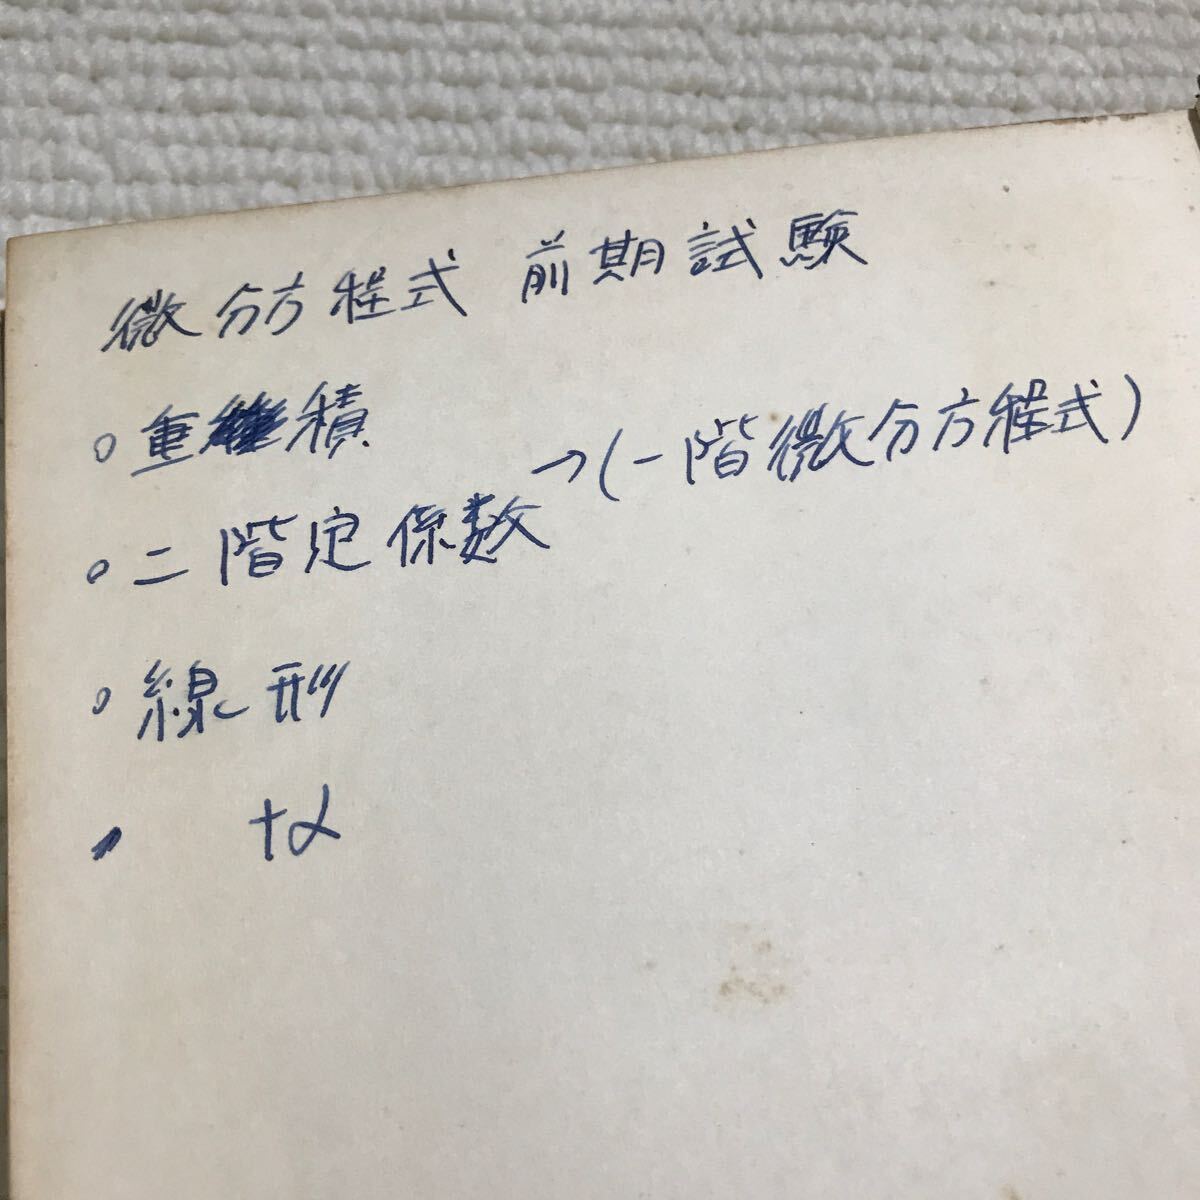 微分方程式 前期試験
○重積
○二階定係数→(一階微分方程式)
○線形